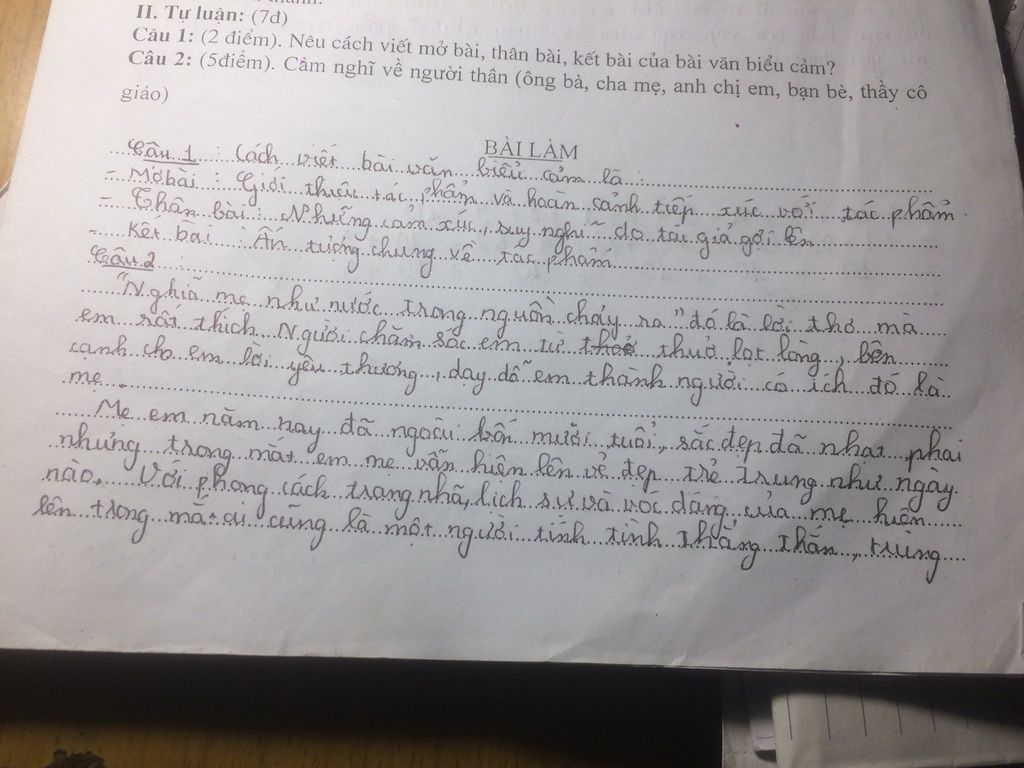 II. Tự luận: (7đ)
Câu 1: (2 điểm). Nêu cách viết mở bài, thân bài, kết bài của bài văn biểu cảm?
Câu 2: (5điểm). Cảm nghĩ về người thân (ông bà, cha mẹ, anh chị em, bạn bè, thầy cô
giáo)
BÀI LÀM
Câu 1 : Cách viết bài văn biểu cảm là :
- Mở bài : Giới thiệu tác phẩm và hoàn cảnh tiếp xúc với tác phẩm
- Thân bài : Những cảm xúc, suy nghĩ do tác giả gợi lên
- Kết bài : Ấn tượng chung về tác phẩm
Câu 2
"Nghĩa mẹ như nước trong nguồn chảy ra" đó là lời thơ mà
em rất thích. Người chăm sóc em từ thuở lọt lòng, bên
cạnh cho em lời yêu thương, dạy dỗ em thành người có ích đó là
mẹ.
Mẹ em năm nay đã ngoài bốn mươi tuổi, sắc đẹp đã nhạt phai
nhưng trong mắt em mẹ vẫn hiện lên vẻ đẹp trẻ trung như ngày
nào. Với phong cách trang nhã, lịch sự và vóc dáng của mẹ hiện
lên trong mắt ai cũng là một người tính tình thẳng thắn,